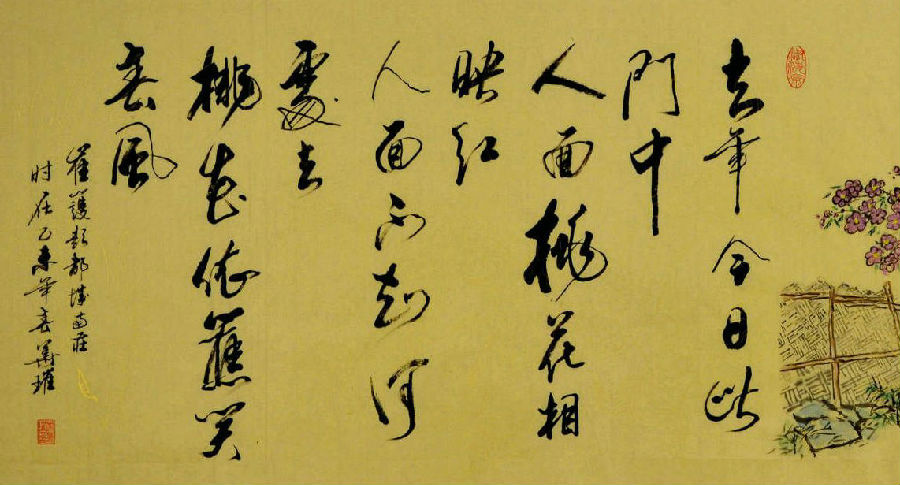 去年今日此
門中
人面桃花相
映红
人面不知何
處去
桃花依舊笑
春風
崔護題都城南莊
时在乙未年春